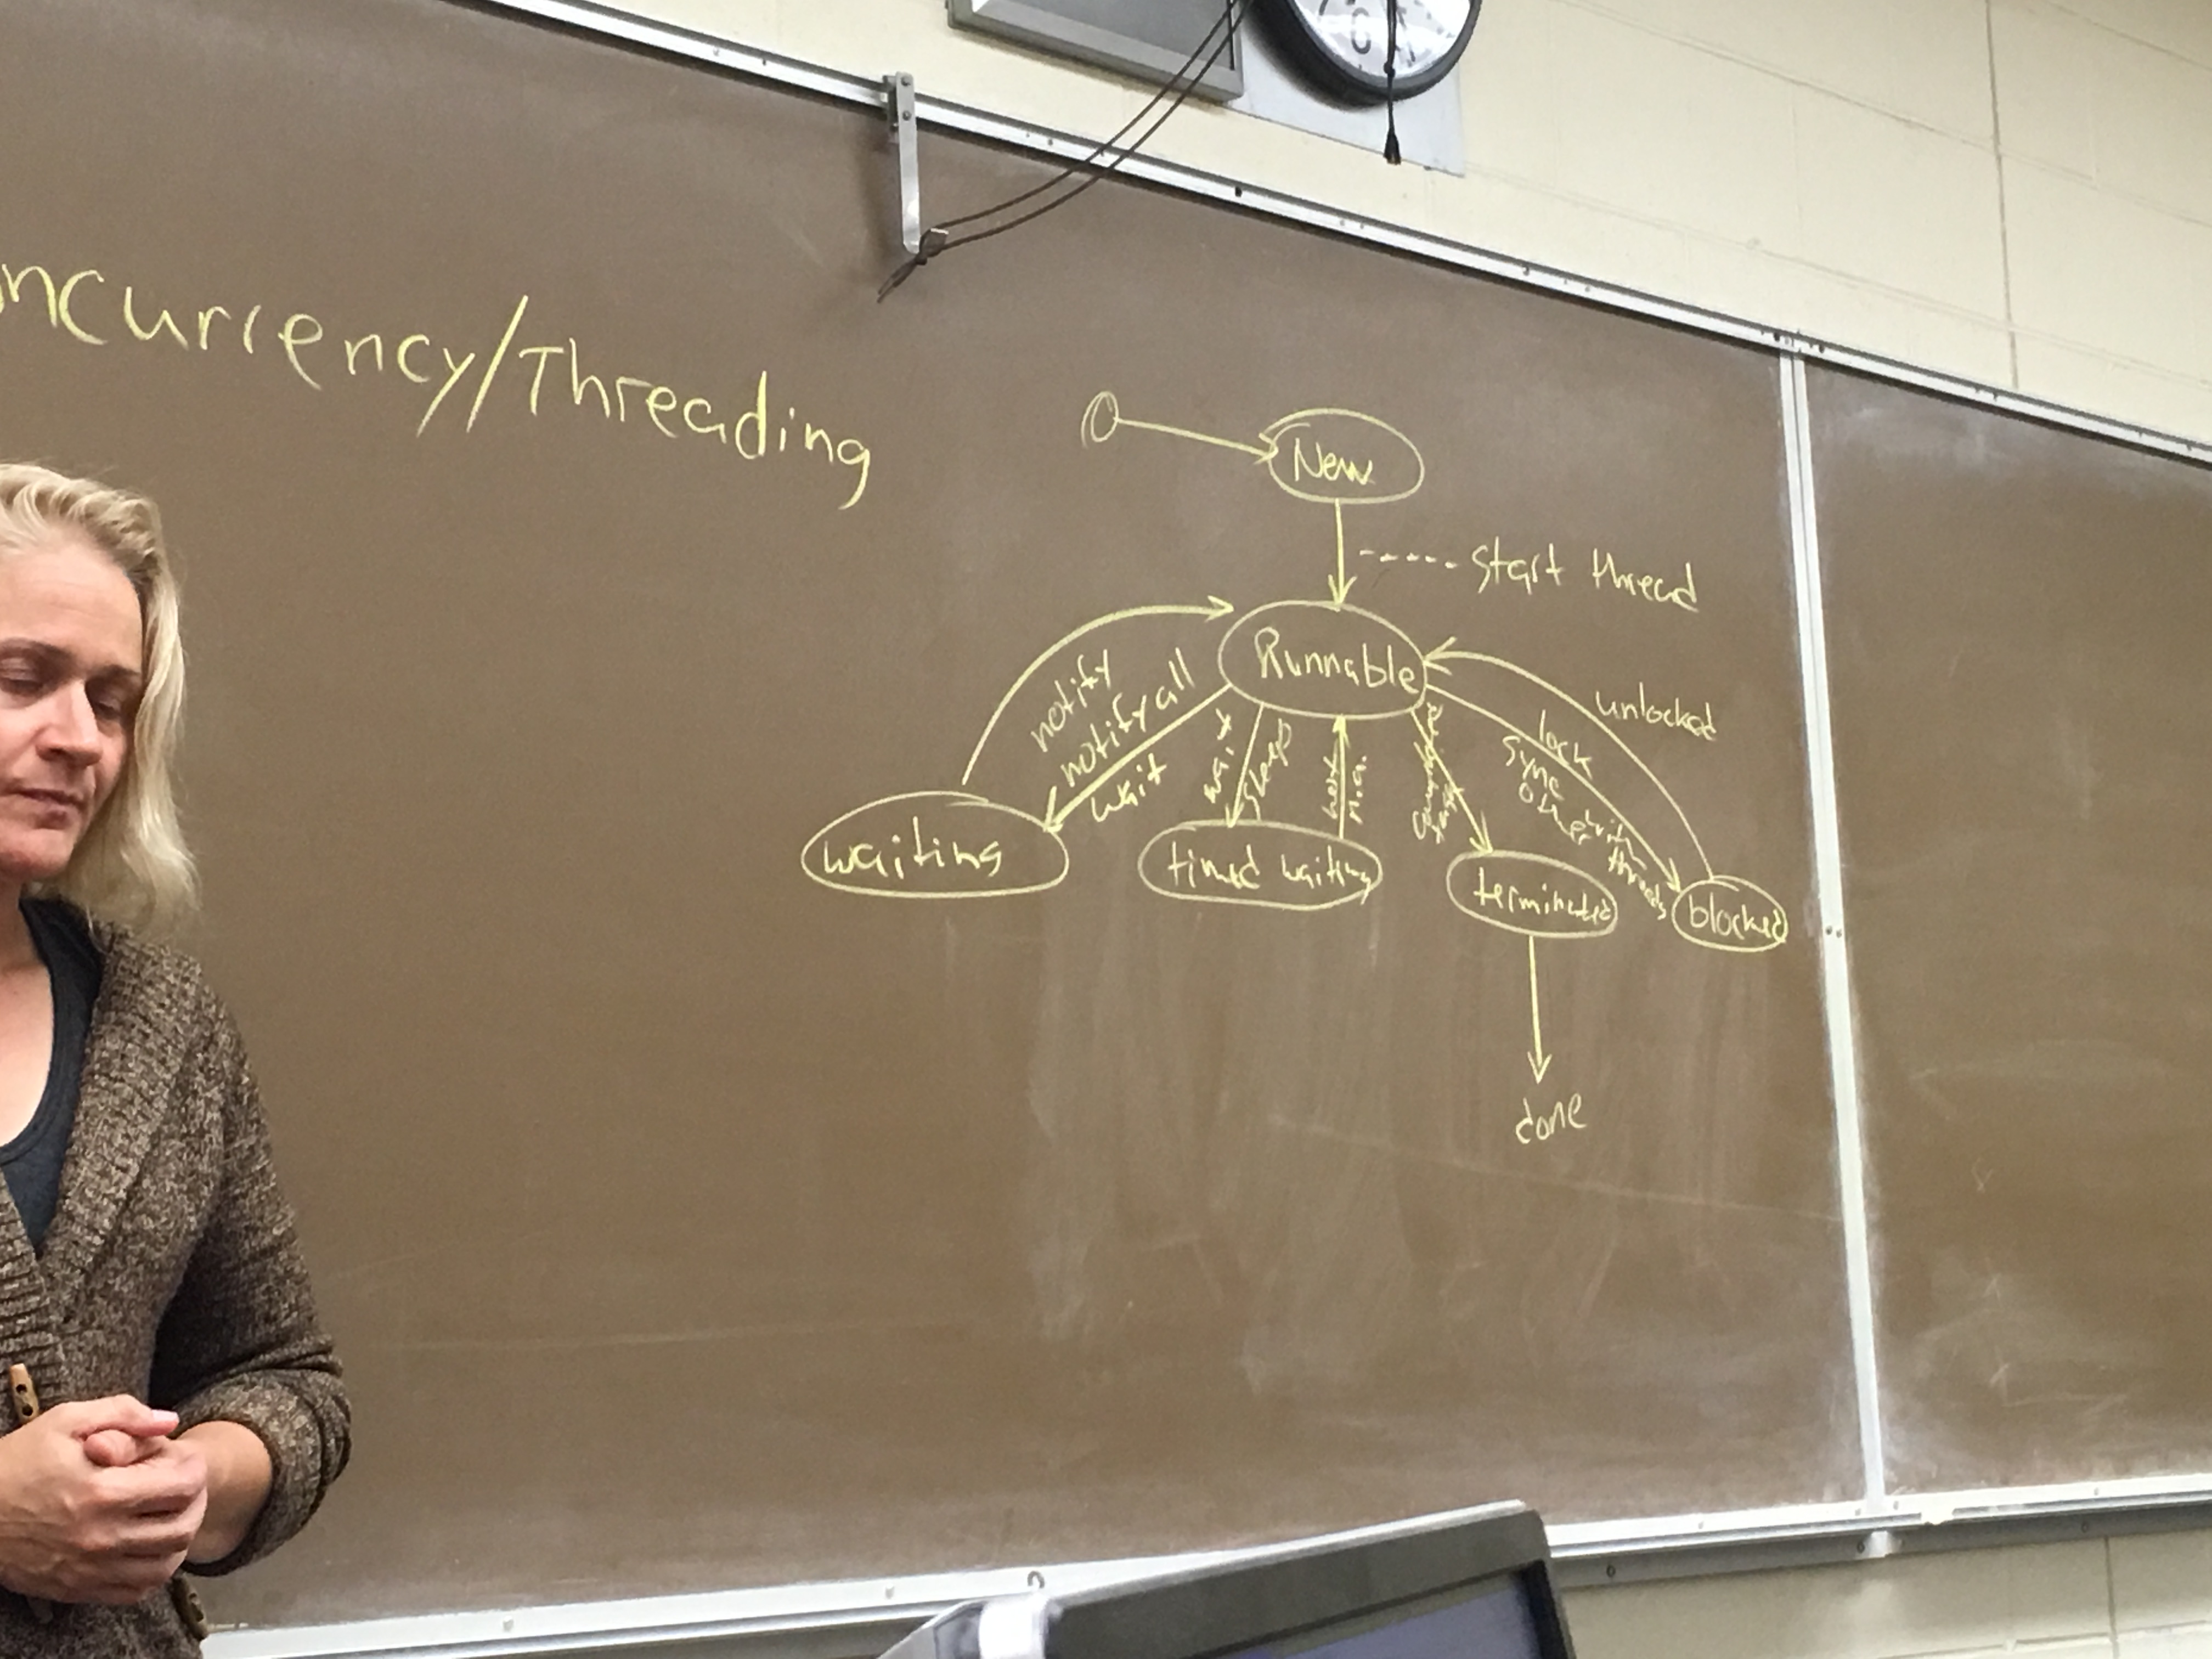 ncurrency/Threading
New
start thread
Runnable
notify
notify all
wait
wait
sleep
n.a.
unlocked
lock
sync
other
with
threads
waiting
timed waiting
terminated
blocked
done